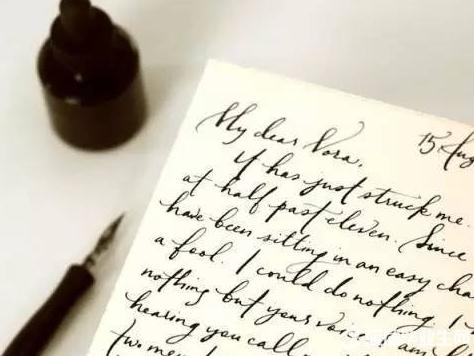 My dear Nora, 15 Aug
It has just struck me.
at half past eleven. Since
have been sitting in an easy cha
a fool. I could do nothing. I
nothing but your voice. I am
hearing you call
two men